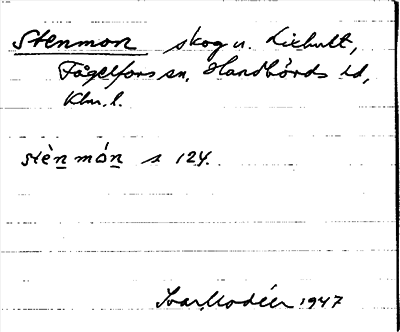 Stenmon skog u. Liehult,
Fågelfors sn, Handbörds hd,
Klm. l.
stèn món s 124.
Ivar Modéer 1947